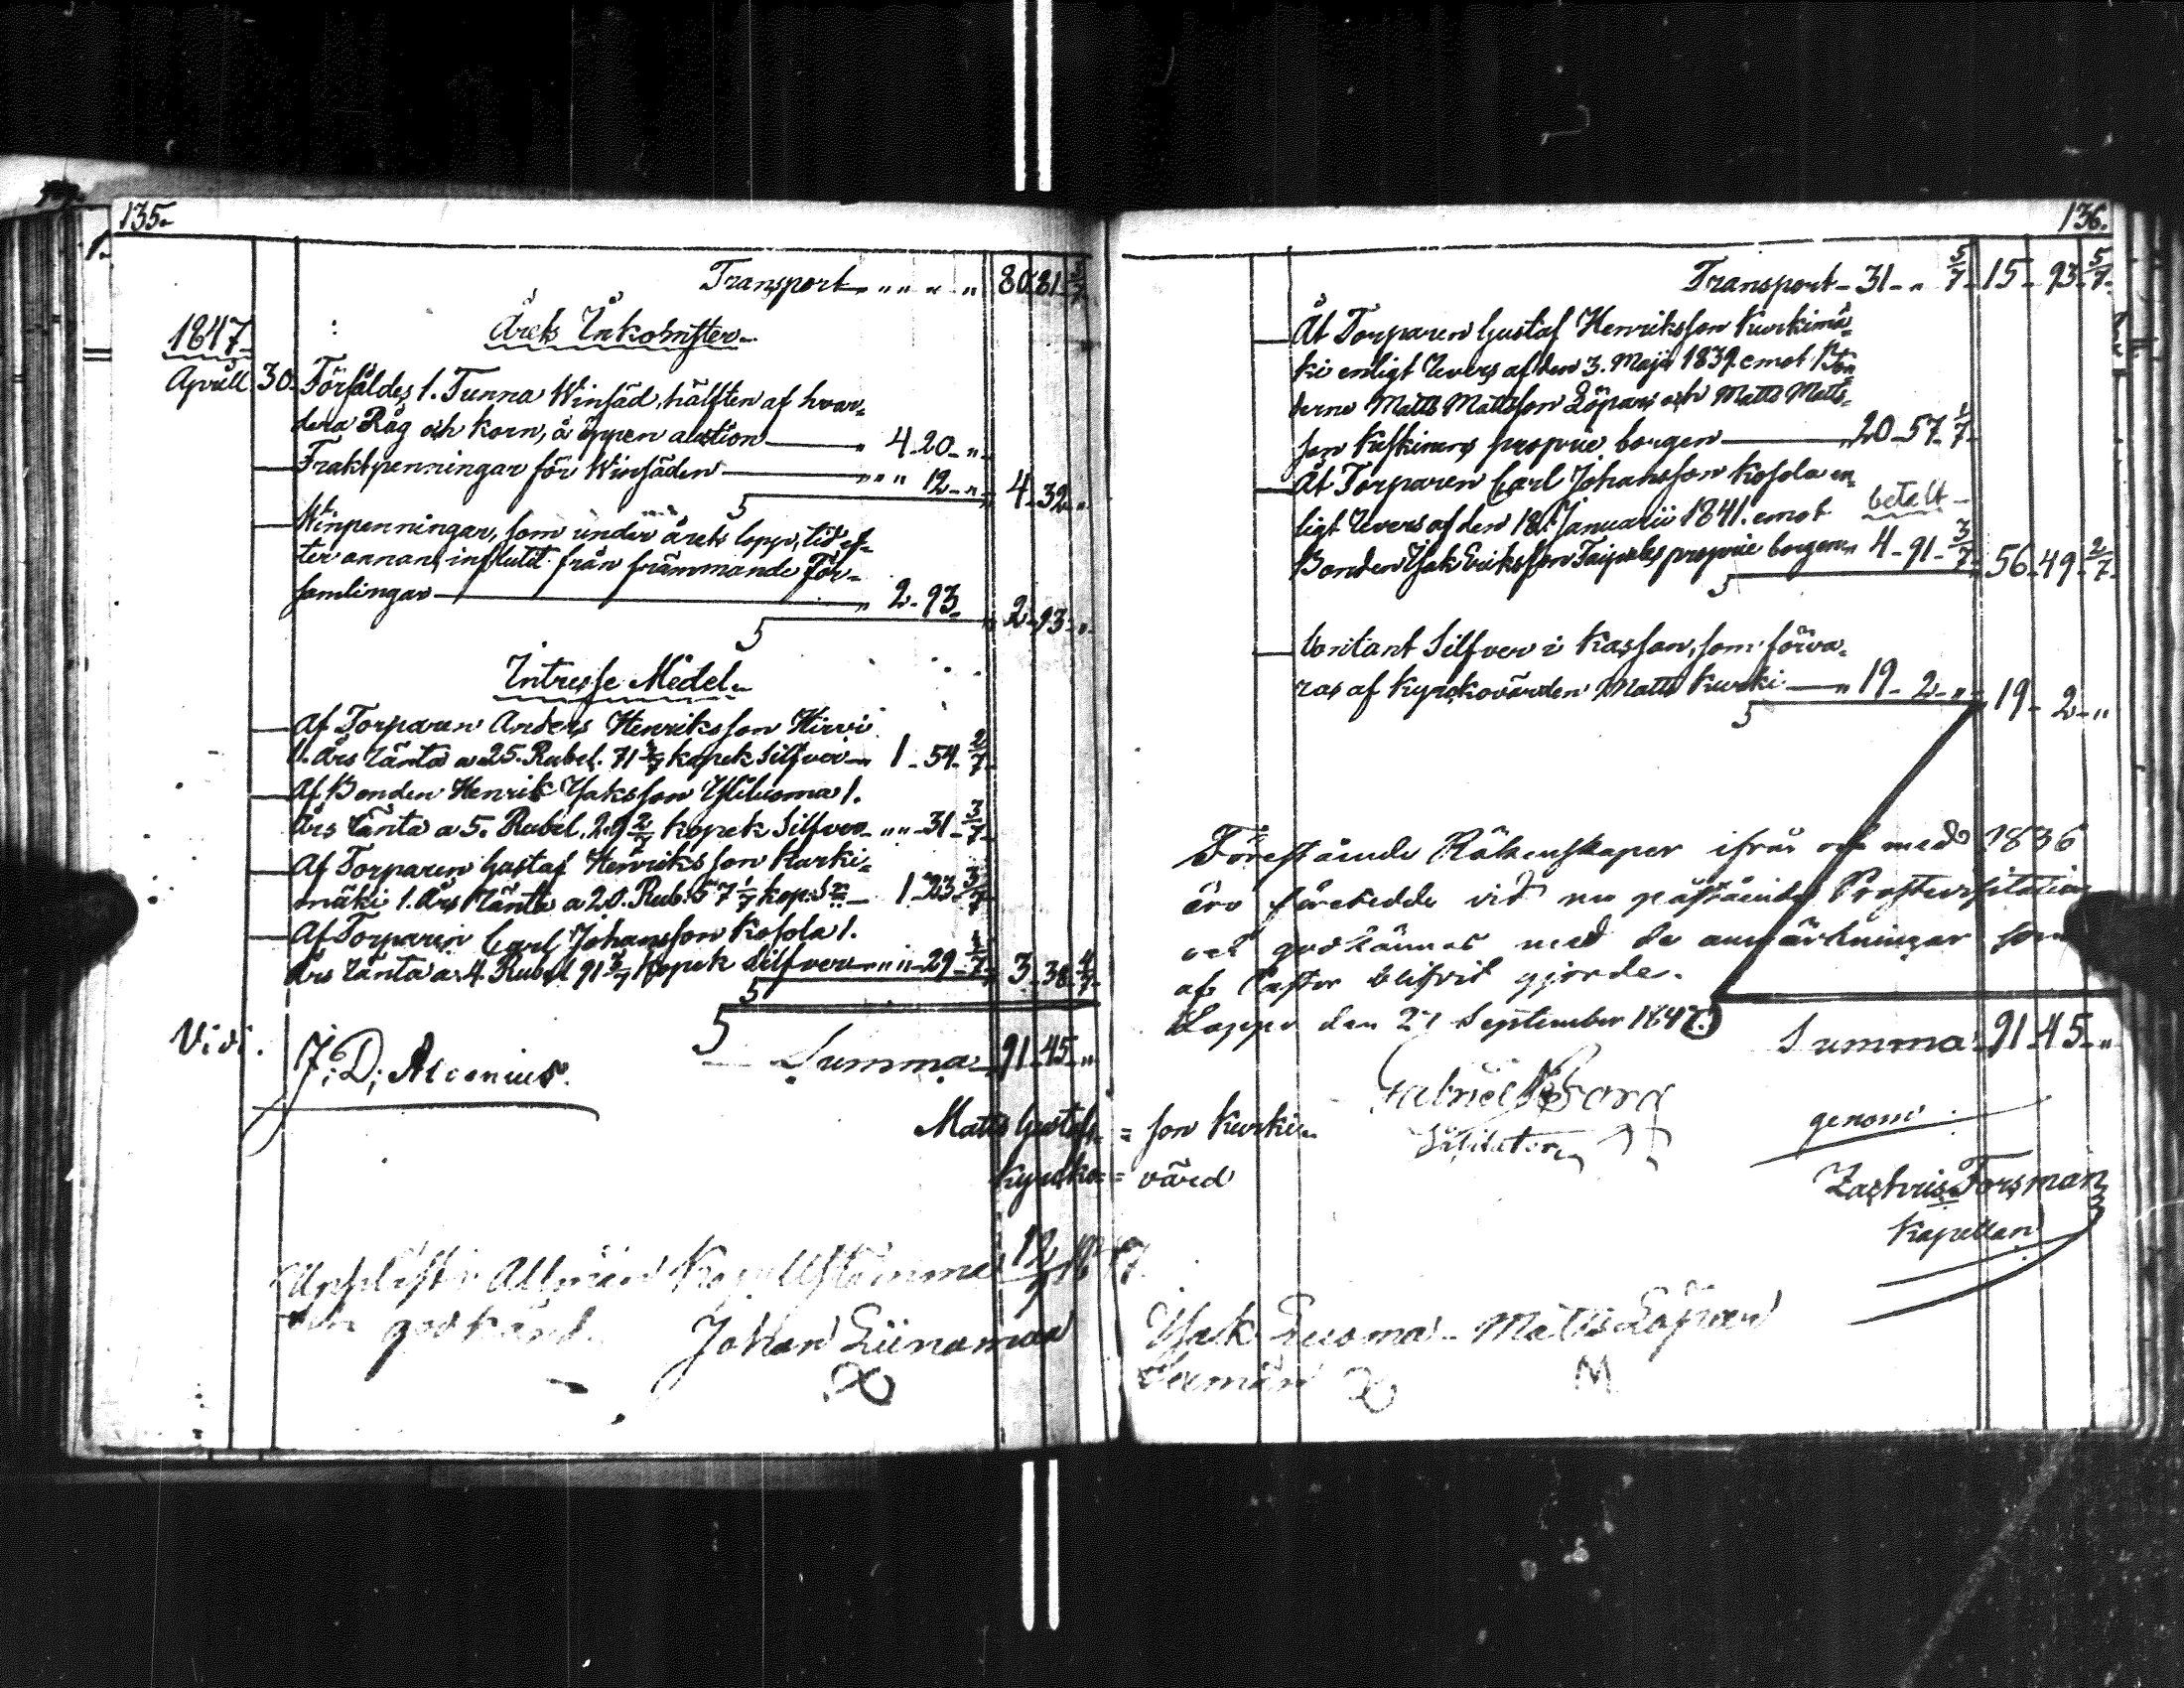 135.
Transport „ „ „ „ 80 81 3/7
Årets Inkomster
1847
Aprill 30. Försåldes 1. Tunna Winsäd, hälften af hvar-
dera Råg och korn, å öppen auction „ 4. 20 „
Fraktpenningar för Winsäden „ „ „ 12 „ 4. 32 „
Winpenningar, som under årets lopp, tid ef-
ter annan, influtit från främmande För-
samlingar „ 2. 93 2. 93 „
Intresse Medel
Af Torparen Anders Henriksson Hirvi
1. Års Ränta a 25. Rubel. 71 3/7 kopek Silfver „ 1. 54 2/7
Af Bonden Henrik Isaksson Yliluoma 1.
Års Ränta a 5. Rubel. 29 2/7 kopek Silfver „ „ 31 3/7
Af Torparen Gustaf Henriksson Kurki-
mäki 1. Års Ränta a 20. Rub. 57 1/7 kop. Sr 1. 23 3/7
Af Torparen Carl Johansson Kosola 1.
Års Ränta a 4. Rubel 91 3/7 kopek Silfver „ „ 29 3/7 3. 38 4/7
Vidi.
J: D; Alcenius.
Summa 91. 45 „
Matts Gustafs- = son Kurki
Kyrcko- = värd
Uppläst i Allmän Kapellstämma 12/9 1847
och godkänd. Johan Liinamaa
136.
Transport 31 „ 5/7 15. 93 5/7
Åt Torparen Gustaf Henriksson Kurkimä-
ki enligt Revers af den 3. Maji 1839. emot Bön-
derne Matts Mattsson Löpars och Matts Matts-
son Kuskinens proprie borgen 20. 57 1/7
Åt Torparen Carl Johansson Kosola en-
ligt Revers af den 18. Januarii 1841. emot betalt
Bonden Isak Eriksson Taipales proprie borgen „ 4. 91 3/7 56. 49 2/7
Contant Silfver i Kassan, som förva-
ras af Kyrckovärden Matts Kurki „ 19. 2 „ 19. 2 „
Föreståuende Räkenskaper ifrån och med 1836
äro företedde vid nu påstående Prostevisitation
och godkännes med de anmärkningar som
af Pastor blifvit gjorde.
Lappo den 27 September 1847.
Summa 91. 45 „
Gabriel Borg
Visitator
genom
Zachris Forsman
Kapellan
Isak Luoma Matts Löpari
Sexmän M